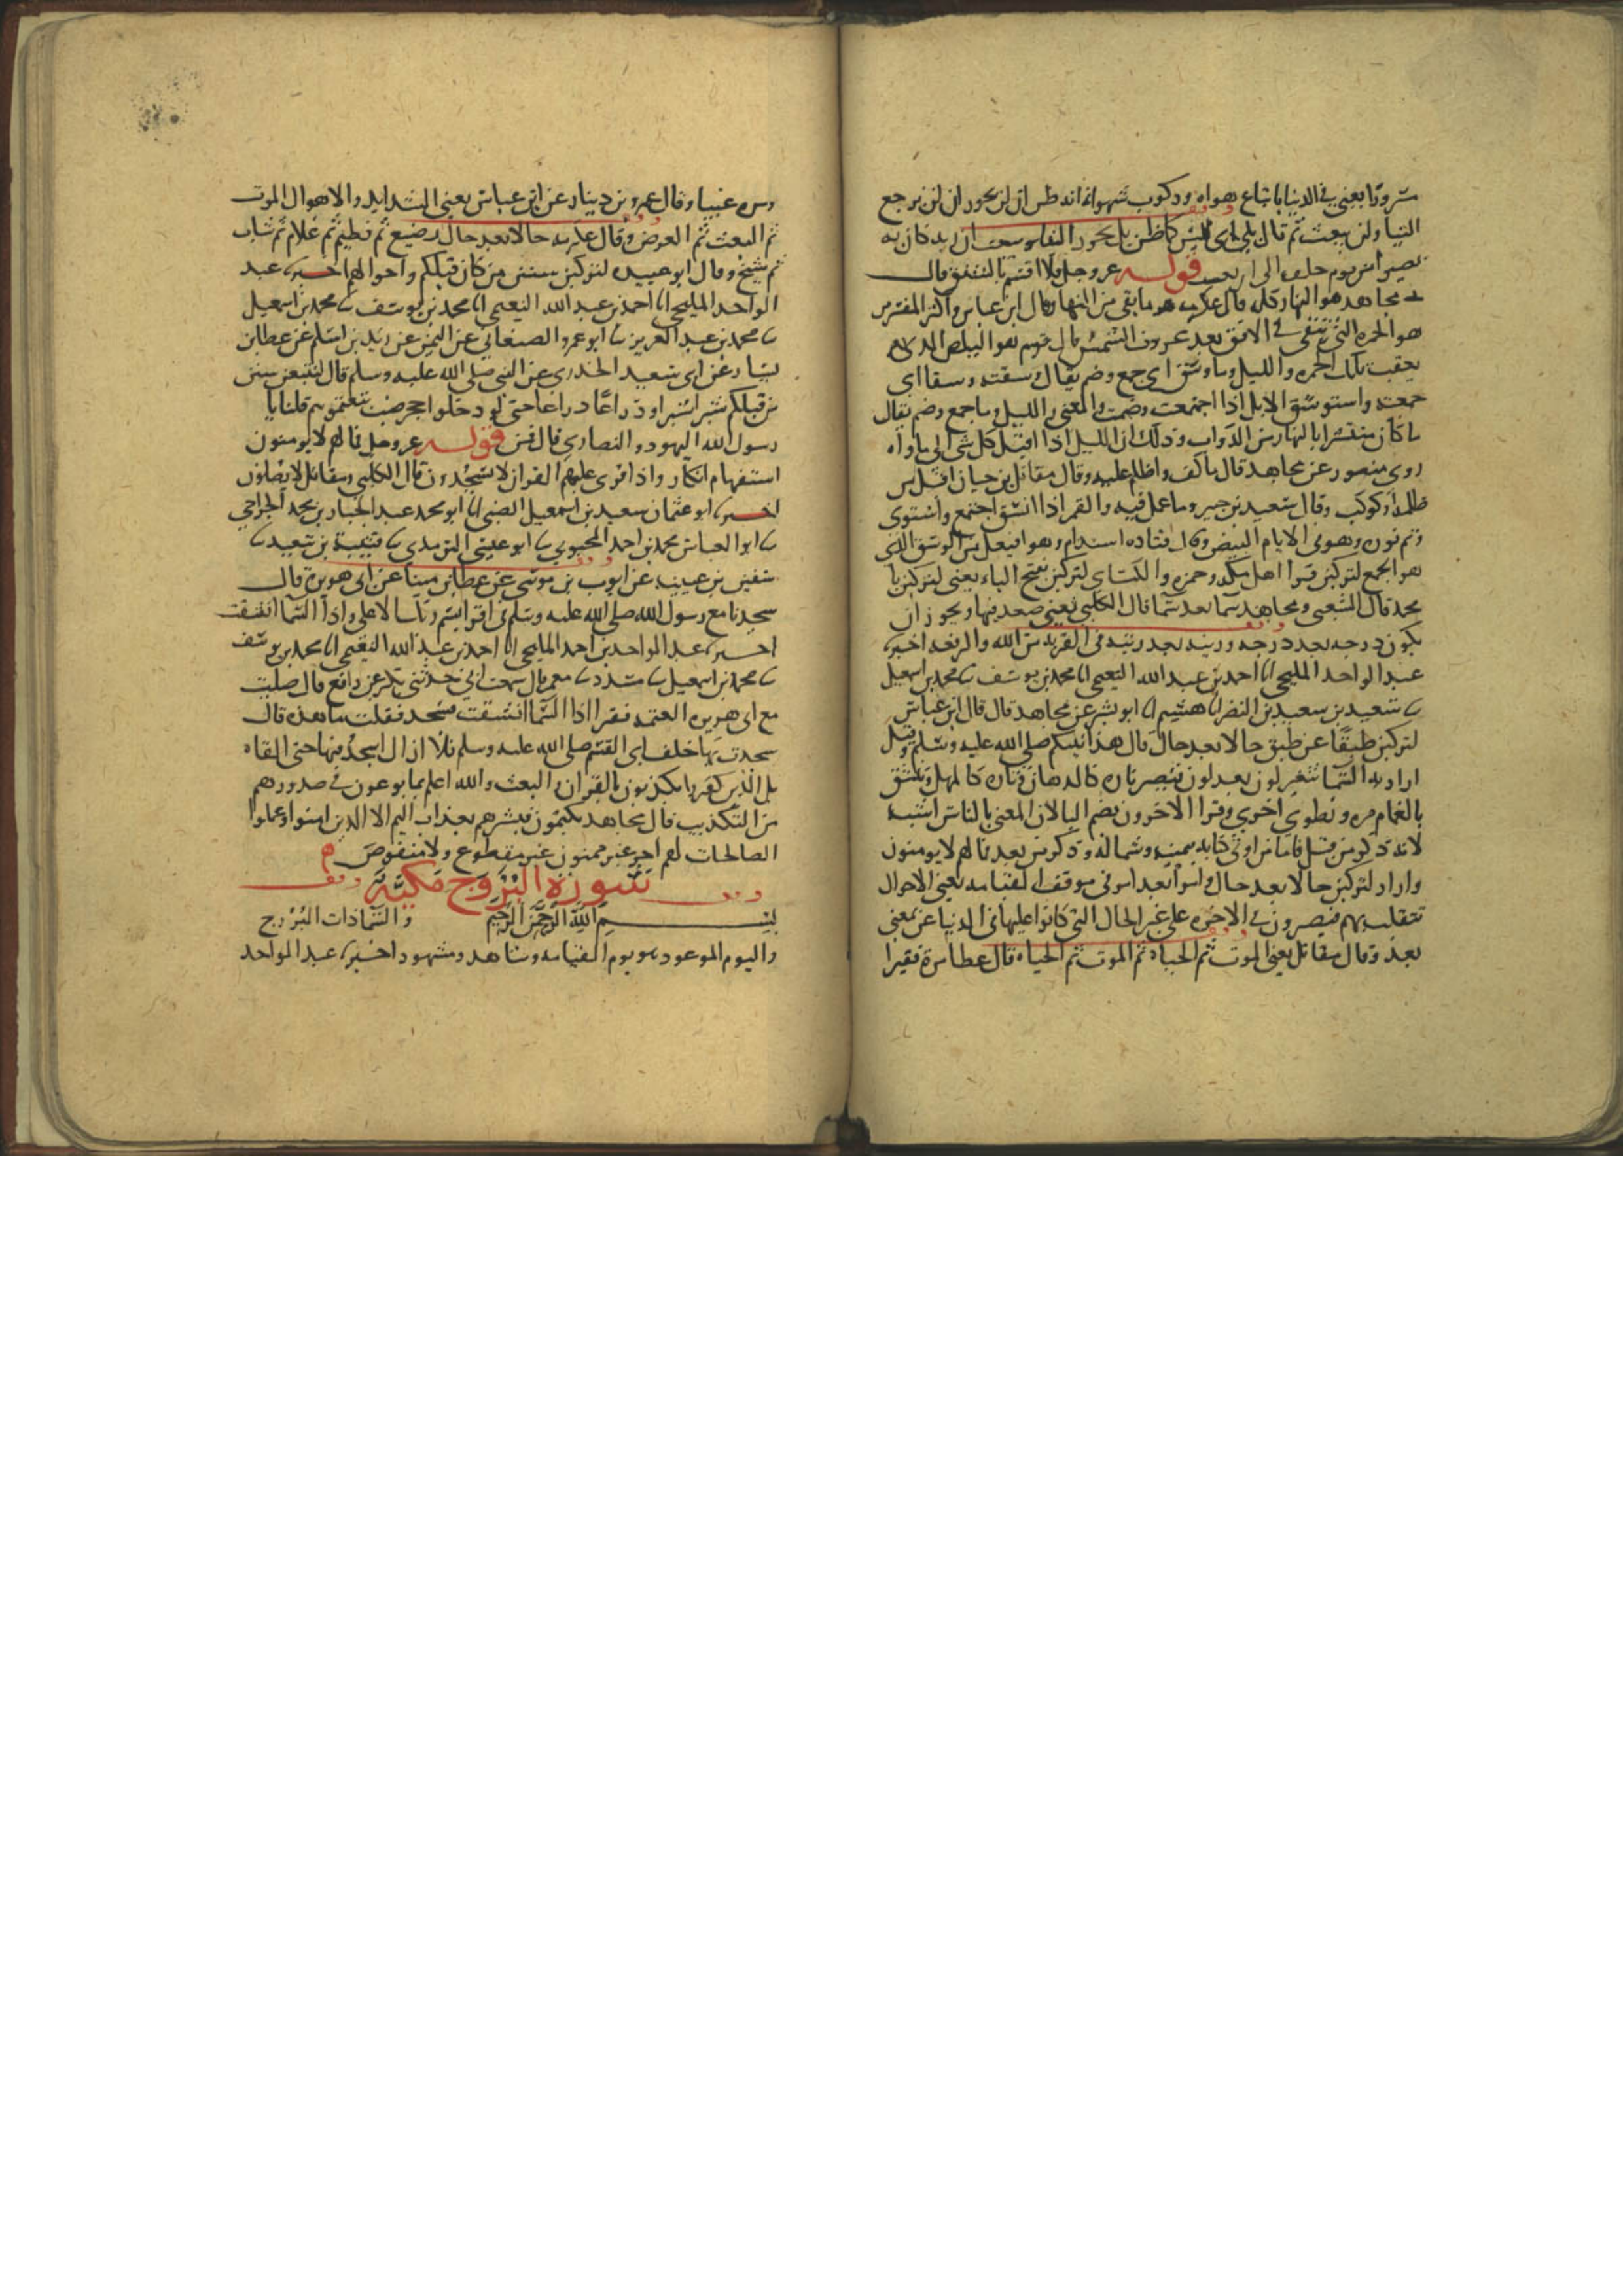 مسرورا يعني في الدنيا باتباع هواه وركوب شهواته انه ظن ان لن يحور ان لن يرجع
الينا ولن يبعث ثم قال بلى اي ليس كما ظن بل يحور الينا ويبعث ان ربه كان به
بصيرا من يوم خلقه الى ان بعثه قوله عز وجل فلا اقسم بالشفق قال
مجاهد هو النهار كله قال عكرمه هو ما بقي من النهار وقال ابن عباس واكثر المفسرين
هو الحمره التي تبقى في الافق بعد غروب الشمس قال قوم هو البياض الذي
يعقب تلك الحمره والليل وما وسق اي جمع وضم يقال وسقته وسقا اي
جمعته واستوسقت الابل اذا اجتمعت وضمت والمعنى والليل وما جمع وضم يقال
ما كان منتشرا بالنهار من الدواب وذلك ان الليل اذا اقبل كل شي الى ماواه
روى منصور عن مجاهد قال ما لف واظلم عليه وقال مقاتل بن حيان اقبل من
ظلمه او كوكب وقال سعيد بن جبير وما عمل فيه والقمر اذا اتسق اجتمع واستوى
وتم نوره وهو في الايام البيض وقال قتاده استدار وهو افتعل من الوسق الذي
هو الجمع لتركبن قرا اهل مكه وحمزه والكساي لتركبن بفتح الباء يعني لتركبن يا
محمد قال الشعبي ومجاهد سما بعد سما قال الكلبي يعني تصعد فيها ويجوز ان
يكون درجه بعد درجه ورتبه بعد رتبه في القربه من الله والرفعه اخبرنا
عبد الواحد المليحي انا احمد بن عبد الله النعيمي انا محمد بن يوسف نا محمد بن اسمعيل
نا سعيد بن النضر انا هشيم انا ابو بشر عن مجاهد قال قال ابن عباس
لتركبن طبقا عن طبق حالا بعد حال قال هذا نبيكم صلى الله عليه وسلم وقيل
اراد به السما تتغير لون بعد لون فتصير تاره كالدهان وتاره كالمهل وتشقق
بالغمام مره وتطوى اخرى وقرا الاخرون بضم البا لان المعنى بالناس اشبه
لانه ذكر من قبل فاما من اوتي كتابه بيمينه وشماله وذكر من بعد فما لهم لا يومنون
واراد لتركبن حالا بعد حال وامرا بعد امر في موقف القيامه يعني الاحوال
تتقلب بهم فيصيرون في الاخره على غير الحال التي كانوا عليها في الدنيا عن بمعنى
بعد وقال مقاتل يعني الموت ثم الحياه ثم الموت ثم الحياه قال عطا مره فقيرا
ومره غنيا وقال عمرو بن دينار عن ابن عباس يعني الشدايد والاهوال الموت
ثم البعث ثم العرض وقال عكرمه حالا بعد حال رضيع ثم فطيم ثم غلام ثم شاب
ثم شيخ وقال ابو عبيده لتركبن سنن من كان قبلكم واحوالهم اخبرنا عبد
الواحد المليحي انا احمد بن عبد الله النعيمي انا محمد بن يوسف نا محمد بن اسمعيل
نا محمد بن عبد العزيز نا ابو عمر والصنعاني عن اليمن عن زيد بن اسلم عن عطا بن
يسار عن ابي سعيد الخدري عن النبي صلى الله عليه وسلم قال لتتبعن سنن
من قبلكم شبرا شبرا وذراعا ذراعا حتى لو دخلوا جحر ضب تبعتموهم قلنا يا
رسول الله اليهود والنصارى قال فمن قوله عز وجل فما لهم لا يومنون
استفهام انكار واذا قرى عليهم القران لا يسجدون قال الكلبي ومقاتل لا يصلون
اخبرنا ابو عثمان سعيد بن اسمعيل الضبي انا ابو محمد عبد الجبار بن محمد الجراحي
نا ابو العباس محمد بن احمد المحبوبي نا ابو عيسى الترمدي نا قتيبة بن سعيد نا
سفين بن عيينه عن ايوب بن موسى عن عطا بن مينا عن ابي هريرة قال
سجدنا مع رسول الله صلى الله عليه وسلم في اقرا باسم ربك الاعلى واذا السما انشقت
اخبرنا عبد الواحد بن احمد المليحي انا احمد بن عبد الله النعيمي انا محمد بن يوسف
نا محمد بن اسمعيل نا مسدد نا معمر قال سمعت ابي حدثني بكر عن رافع قال صليت
مع ابي هريره العتمه فقرا اذا السما انشقت فسجد فقلت ما هذه قال
سجدت بها خلف ابي القسم صلى الله عليه وسلم فلا ازال اسجد فيها حتى القاه
بل الذين كفروا يكذبون بالقران والبعث والله اعلم بما يوعون في صدورهم
من التكذيب قال مجاهد يكتمون فبشرهم بعذاب اليم الا الذين امنوا وعملوا
الصالحات لهم اجر غير ممنون غير مقطوع ولا منقوص
سورة البروج مكية
بسم الله الرحمن الرحيم والسما ذات البروج
واليوم الموعود هو يوم القيامه وشاهد ومشهود اخبرنا عبد الواحد